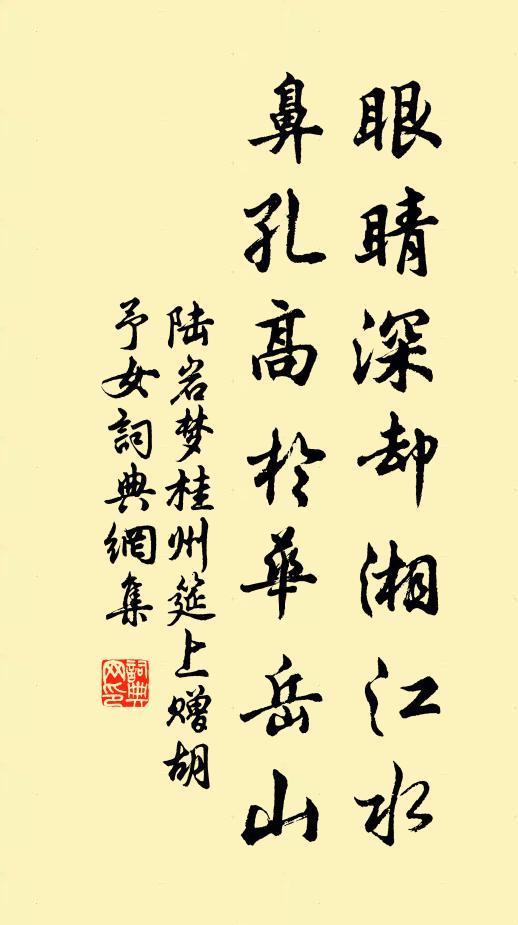 眼睛深却湘江水
鼻孔高於華岳山
陆岩梦桂州筵上赠胡
予女詞典網集
詞典网印